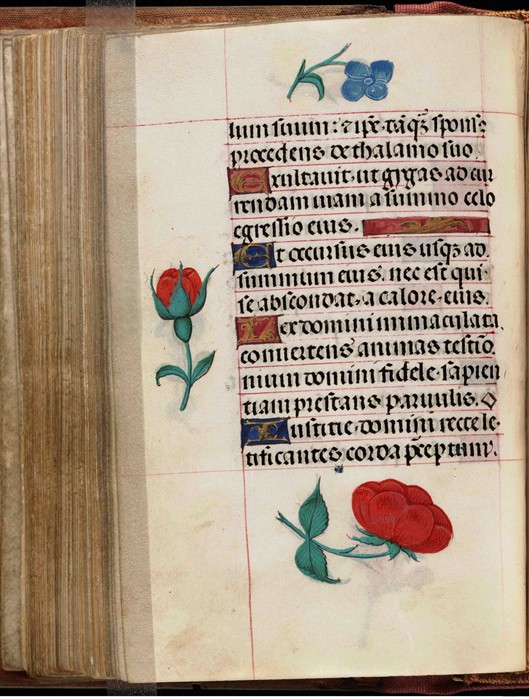 lum suum: ⁊ ip̃e tãq̃ʒ spons⁹
procedens de thalamo suo.
Exultauit, ut gygas ad cur
rendam uiam a summo celo
egressio eius.
Et occursus eius usqʒ ad
summum eius, nec est qui
se abscondat, a calore, eius.
Lex domini immaculata,
conuertens animas testĩo
nium domini fidele, sapien
tiam prestans paruulis.
Iustitie, domini recte le
tificantes corda p̃ceptum.